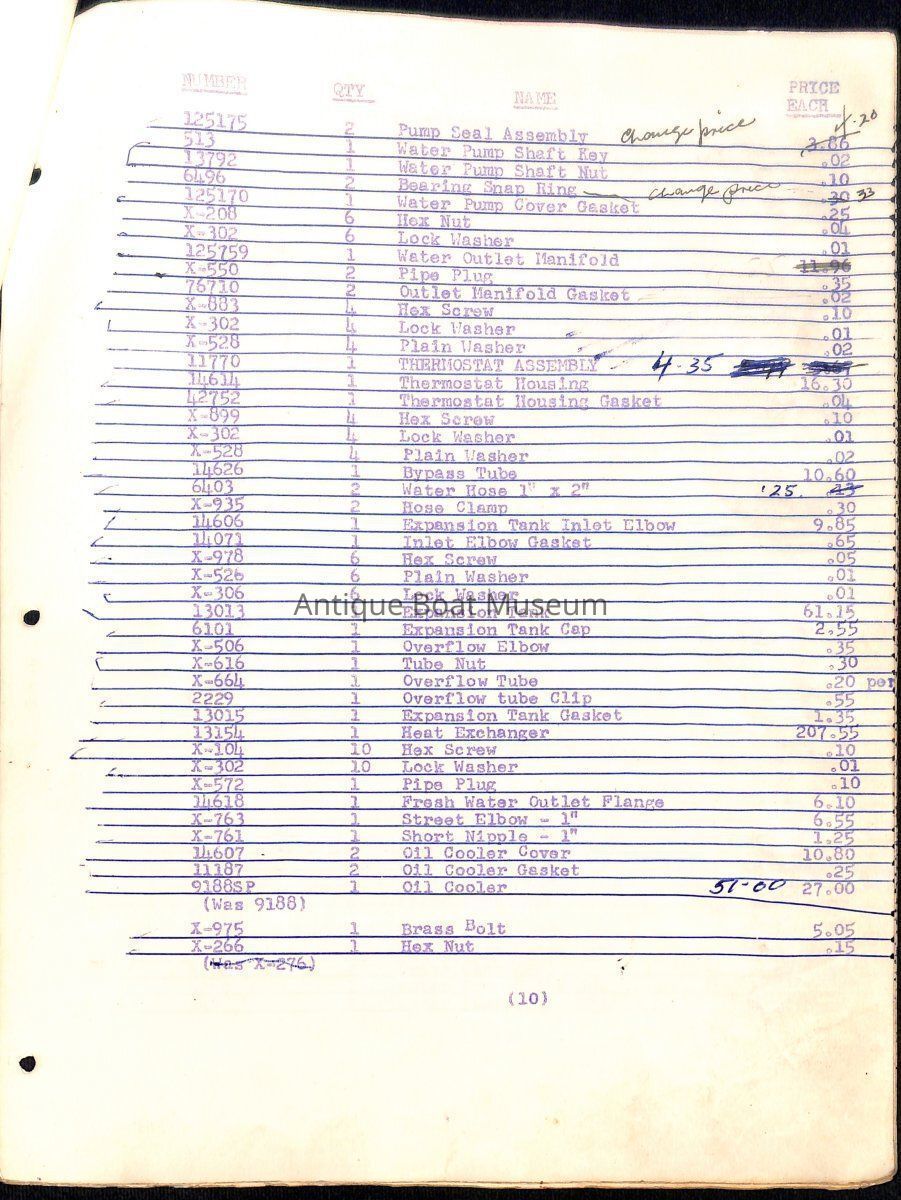 NUMBER QTY NAME PRICE EACH
125175 2 Pump Seal Assembly Change price 3.86 4.20
513 1 Water Pump Shaft Key .02
13792 1 Water Pump Shaft Nut .10
6496 2 Bearing Snap Ring change price .30 33
125170 1 Water Pump Cover Gasket .25
X-208 6 Hex Nut .04
X-302 6 Lock Washer .01
125759 1 Water Outlet Manifold 11.96
X-550 2 Pipe Plug .35
76710 2 Outlet Manifold Gasket .02
X-883 4 Hex Screw .10
X-302 4 Lock Washer .01
X-528 4 Plain Washer .02
11770 1 THERMOSTAT ASSEMBLY 4.35
14614 1 Thermostat Housing 16.30
42752 1 Thermostat Housing Gasket .04
X-899 4 Hex Screw .10
X-302 4 Lock Washer .01
X-528 4 Plain Washer .02
14626 1 Bypass Tube 10.60
6403 2 Water Hose 1" x 2" .25
X-935 2 Hose Clamp .30
14606 1 Expansion Tank Inlet Elbow 9.85
14071 1 Inlet Elbow Gasket .65
X-978 6 Hex Screw .05
X-526 6 Plain Washer .01
X-306 6 Lock Washer .01
Antique Boat Museum
13013 1 Expansion Tank 61.15
6101 1 Expansion Tank Cap 2.55
X-506 1 Overflow Elbow .35
X-616 1 Tube Nut .30
X-664 1 Overflow Tube .20 per
2229 1 Overflow tube Clip .55
13015 1 Expansion Tank Gasket 1.35
13154 1 Heat Exchanger 207.55
X-104 10 Hex Screw .10
X-302 10 Lock Washer .01
X-572 1 Pipe Plug .10
14618 1 Fresh Water Outlet Flange 6.10
X-763 1 Street Elbow - 1" 6.55
X-761 1 Short Nipple - 1" 1.25
14607 2 Oil Cooler Cover 10.80
11187 2 Oil Cooler Gasket .25
9188SP 1 Oil Cooler 51-00 27.00
(Was 9188)
X-975 1 Brass Bolt 5.05
X-266 1 Hex Nut .15
(Was X-276)
(10)